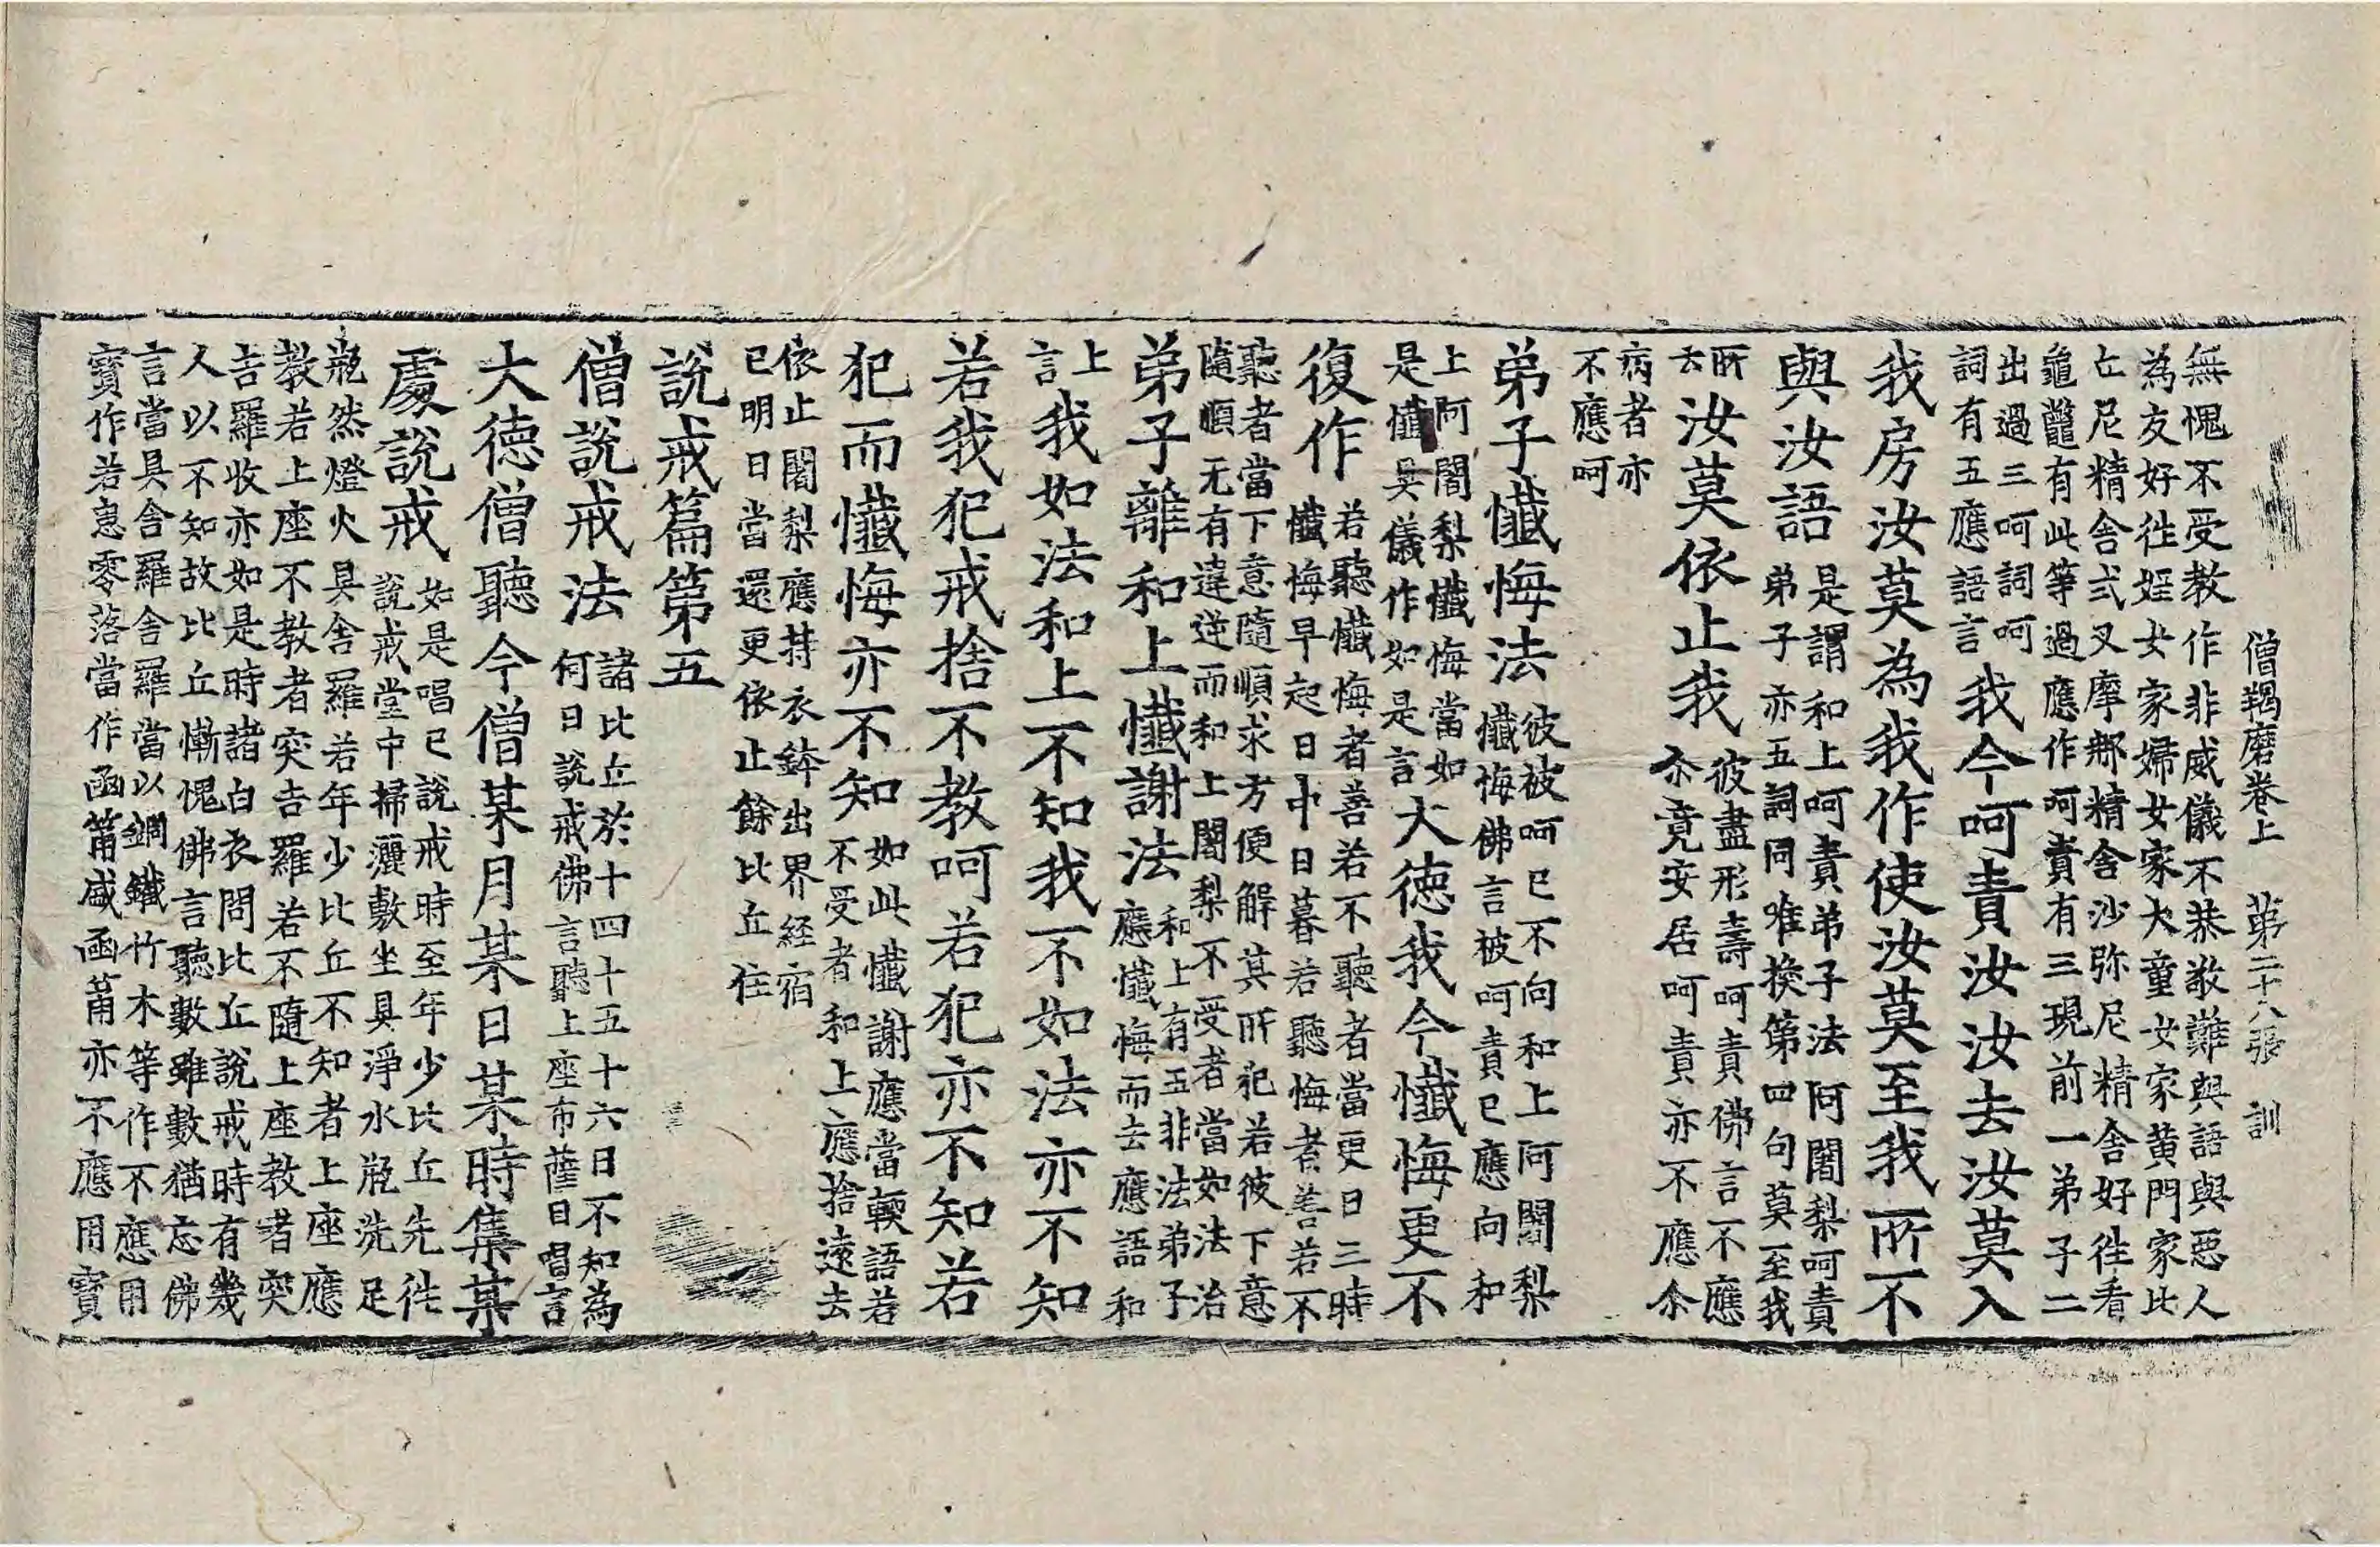 僧羯磨卷上　第二十八張　訓
無愧不受教作非威儀不恭敬難與語與惡人
為友好往婬女家婦女家大童女家黃門家比
丘尼精舍式叉摩那精舍沙弥尼精舍好往看
龜鼈有此等過應作呵責有三現前一弟子二
出過三呵詞呵
詞有五應語言
我今呵責汝汝去汝莫入
我房汝莫為我作使汝莫至我所不
與汝語
是謂和上呵責弟子法阿闍梨呵責
弟子亦五詞同唯換第四句莫至我
所
去
汝莫依止我
彼盡形壽呵責佛言不應
尒竟安居呵責亦不應尒
病者亦
不應呵
弟子懺悔法
彼被呵已不向和上阿闍梨
懺悔佛言被呵責已應向和
上阿闍梨懺悔當如
是懺具儀作如是言
大德我今懺悔更不
復作
若聽懺悔者善若不聽者當更日三時
懺悔早起日中日暮若聽悔者善若不
聽者當下意隨順求方便解其所犯若彼下意
隨順无有違逆而和上闍梨不受者當如法治
弟子離和上懺謝法
和上有五非法弟子
應懺悔而去應語和
上
言
我如法和上不知我不如法亦不知
若我犯戒捨不教呵若犯亦不知若
犯而懺悔亦不知
如此懺謝應當軟語若
不受者和上應捨遠去
依止闍梨應持衣鉢出界経宿
已明日當還更依止餘比丘住
說戒篇第五
僧說戒法
諸比丘於十四十五十六日不知為
何日說戒佛言聽上座布薩日唱言
大德僧聽今僧某月某日某時集某
處說戒
如是唱已說戒時至年少比丘先徃
說戒堂中掃灑敷坐具淨水瓶洗足
瓶然燈火具舍羅若年少比丘不知者上座應
教若上座不教者突吉羅若不隨上座教者突
吉羅收亦如是時諸白衣問比丘說戒時有幾
人以不知故比丘慚愧佛言聽數雖數猶忘佛
言當具舍羅舍羅當以銅鐵竹木等作不應用
寶作若患零落當作函筩盛函筩亦不應用寶